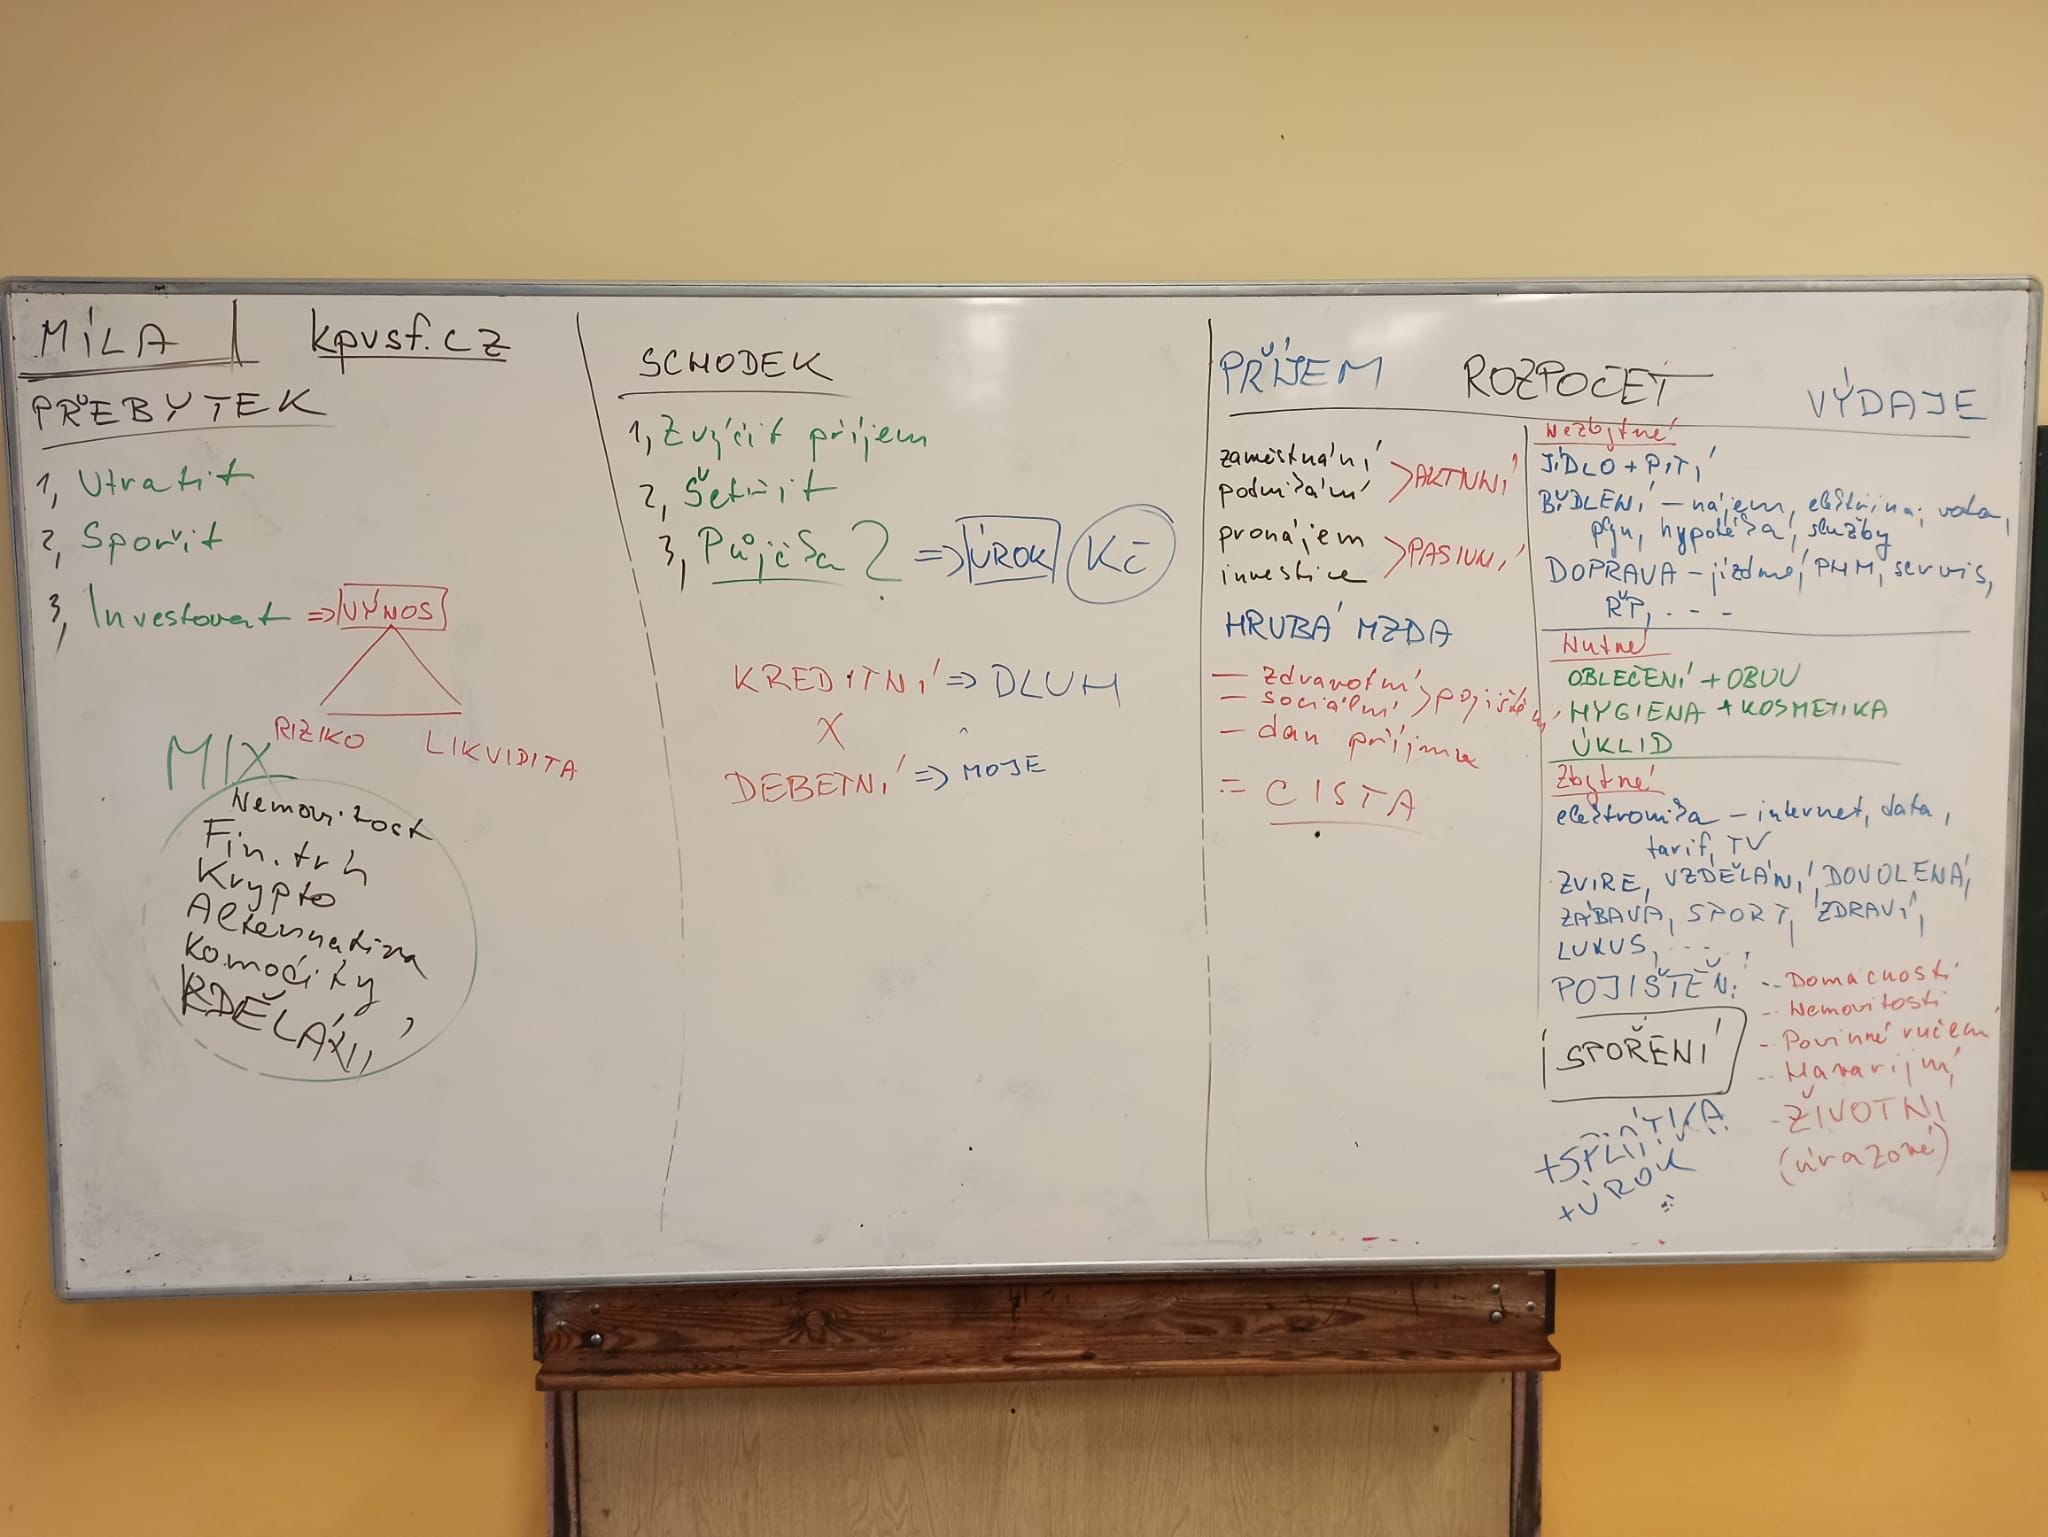 MÍLA
kpvsf.cz
PŘEBYTEK
1, Utratit
2, Spořit
3, Investovat => VÝNOS
RIZIKO
LIKVIDITA
MIX
Nemovitost
Fin. trh
Krypto
Alternativa
Komodity
SCHODEK
1, Zvýšit příjem
2, Šetřit
3, Půjčka? => ÚROK Kč
KREDITNÍ => DLUH
X
DEBETNÍ => MOJE
PŘÍJEM ROZPOČET VÝDAJE
zaměstnání
podnikání
> AKTIVNÍ
pronájem
investice
> PASIVNÍ
HRUBÁ MZDA
- zdravotní
- sociální
> pojištění
- daň příjmu
= CISTA
Nezbytné
JÍDLO + PITÍ
BYDLENÍ - nájem, elektřina, voda,
plyn, hypotéka, služby
DOPRAVA - jízdné, PHM, servis,
ŘP, ...
Nutné
OBLEČENÍ + OBUV
HYGIENA + KOSMETIKA
ÚKLID
Zbytné
elektronika - internet, data,
tarif, TV
ZVÍŘE, VZDĚLÁNÍ, DOVOLENÁ,
ZÁBAVA, SPORT, ZDRAVÍ,
LUXUS, ....
POJIŠTĚNÍ
- Domácnosti
- Nemovitosti
- Povinné ručení
- Havarijní
- ŽIVOTNÍ
(úrazové)
SPOŘENÍ
+ SPLÁTKA
+ ÚROK